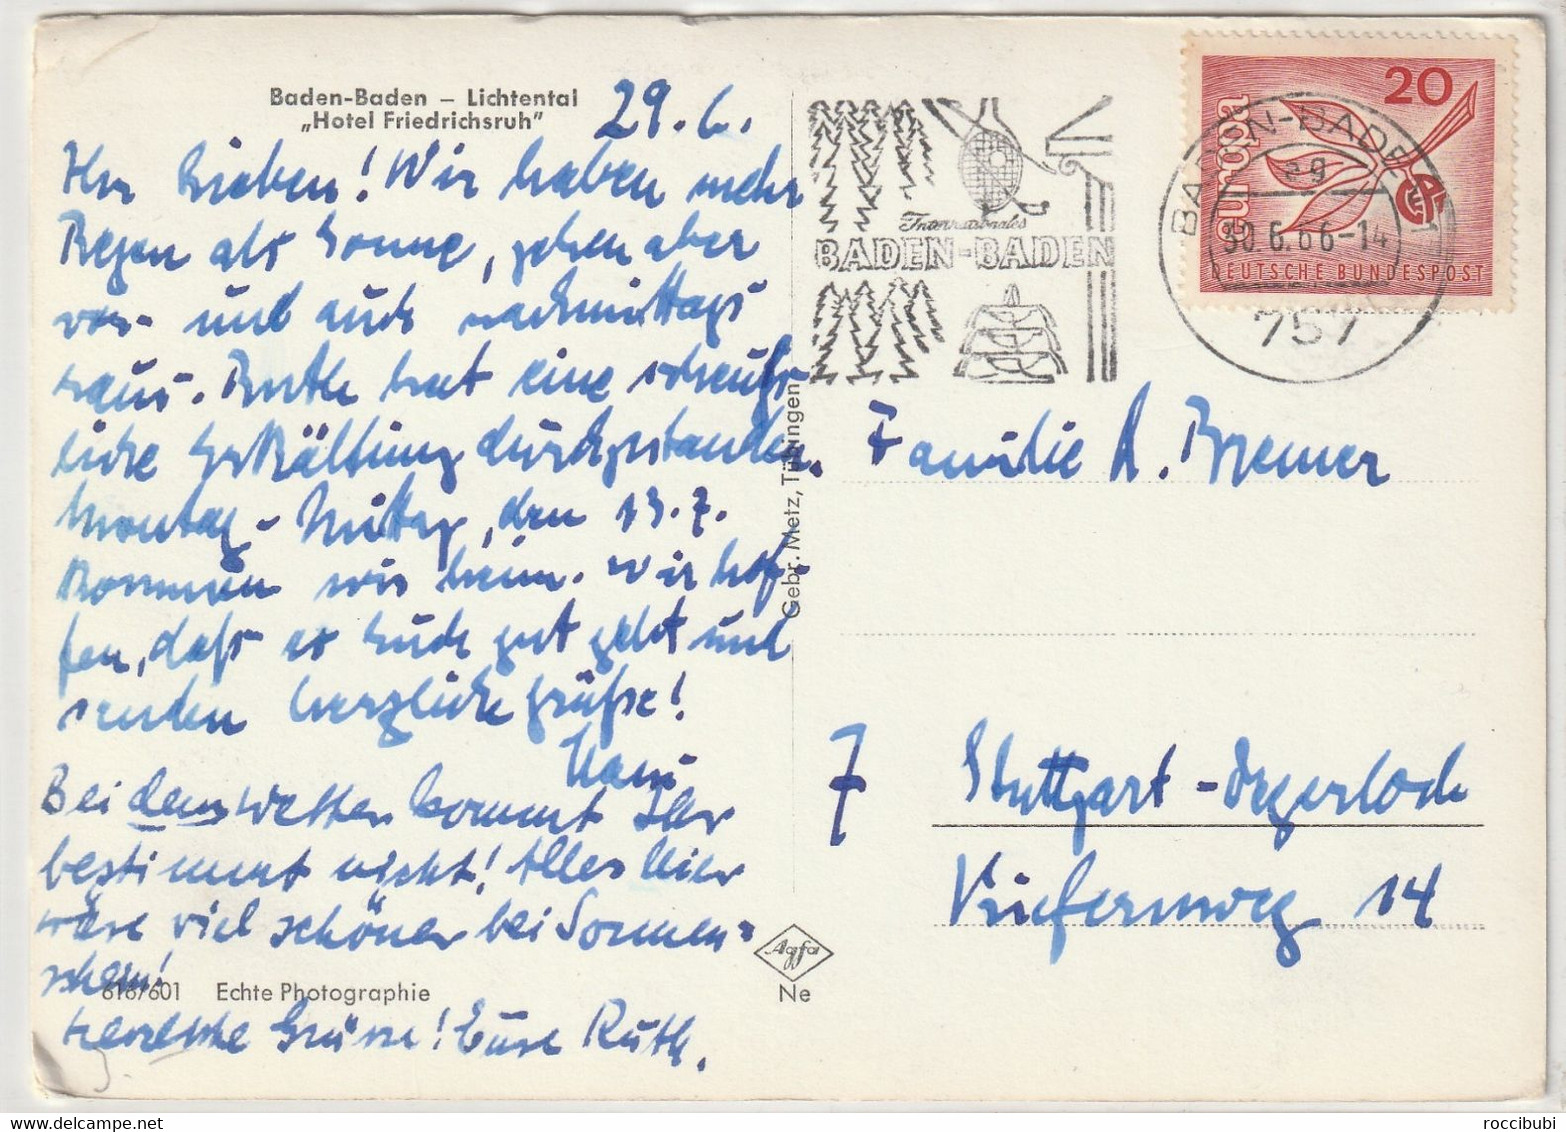 Baden-Baden – Lichtental
„Hotel Friedrichsruh"
29.6.
Ihr Lieben! Wir haben mehr
Regen als Sonne, gehen aber
vor- und auch nachmittags
raus. Ruth hat eine scheuß-
liche Erkältung durchgestanden.
Montag - Mittag, den 13.7.
kommen wir heim. Wir hof-
fen, daß es Euch gut geht und
senden herzliche Grüße!
Hans
Bei dem Wetter kommt Ihr
bestimmt nicht! Alles hier
wäre viel schöner bei Sonnen=
schein!
616/601 Echte Photographie
herzliche Grüsse! Eure Ruth.
Gebr. Metz, Tübingen
Agfa
Ne
Internationales
BADEN-BADEN
BADEN-BADEN
eg
30.6.66-14
757
europa
20
DEUTSCHE BUNDESPOST
Familie A. Bremer
7 Stuttgart-Degerloch
Kiefernweg 14
roccibubi